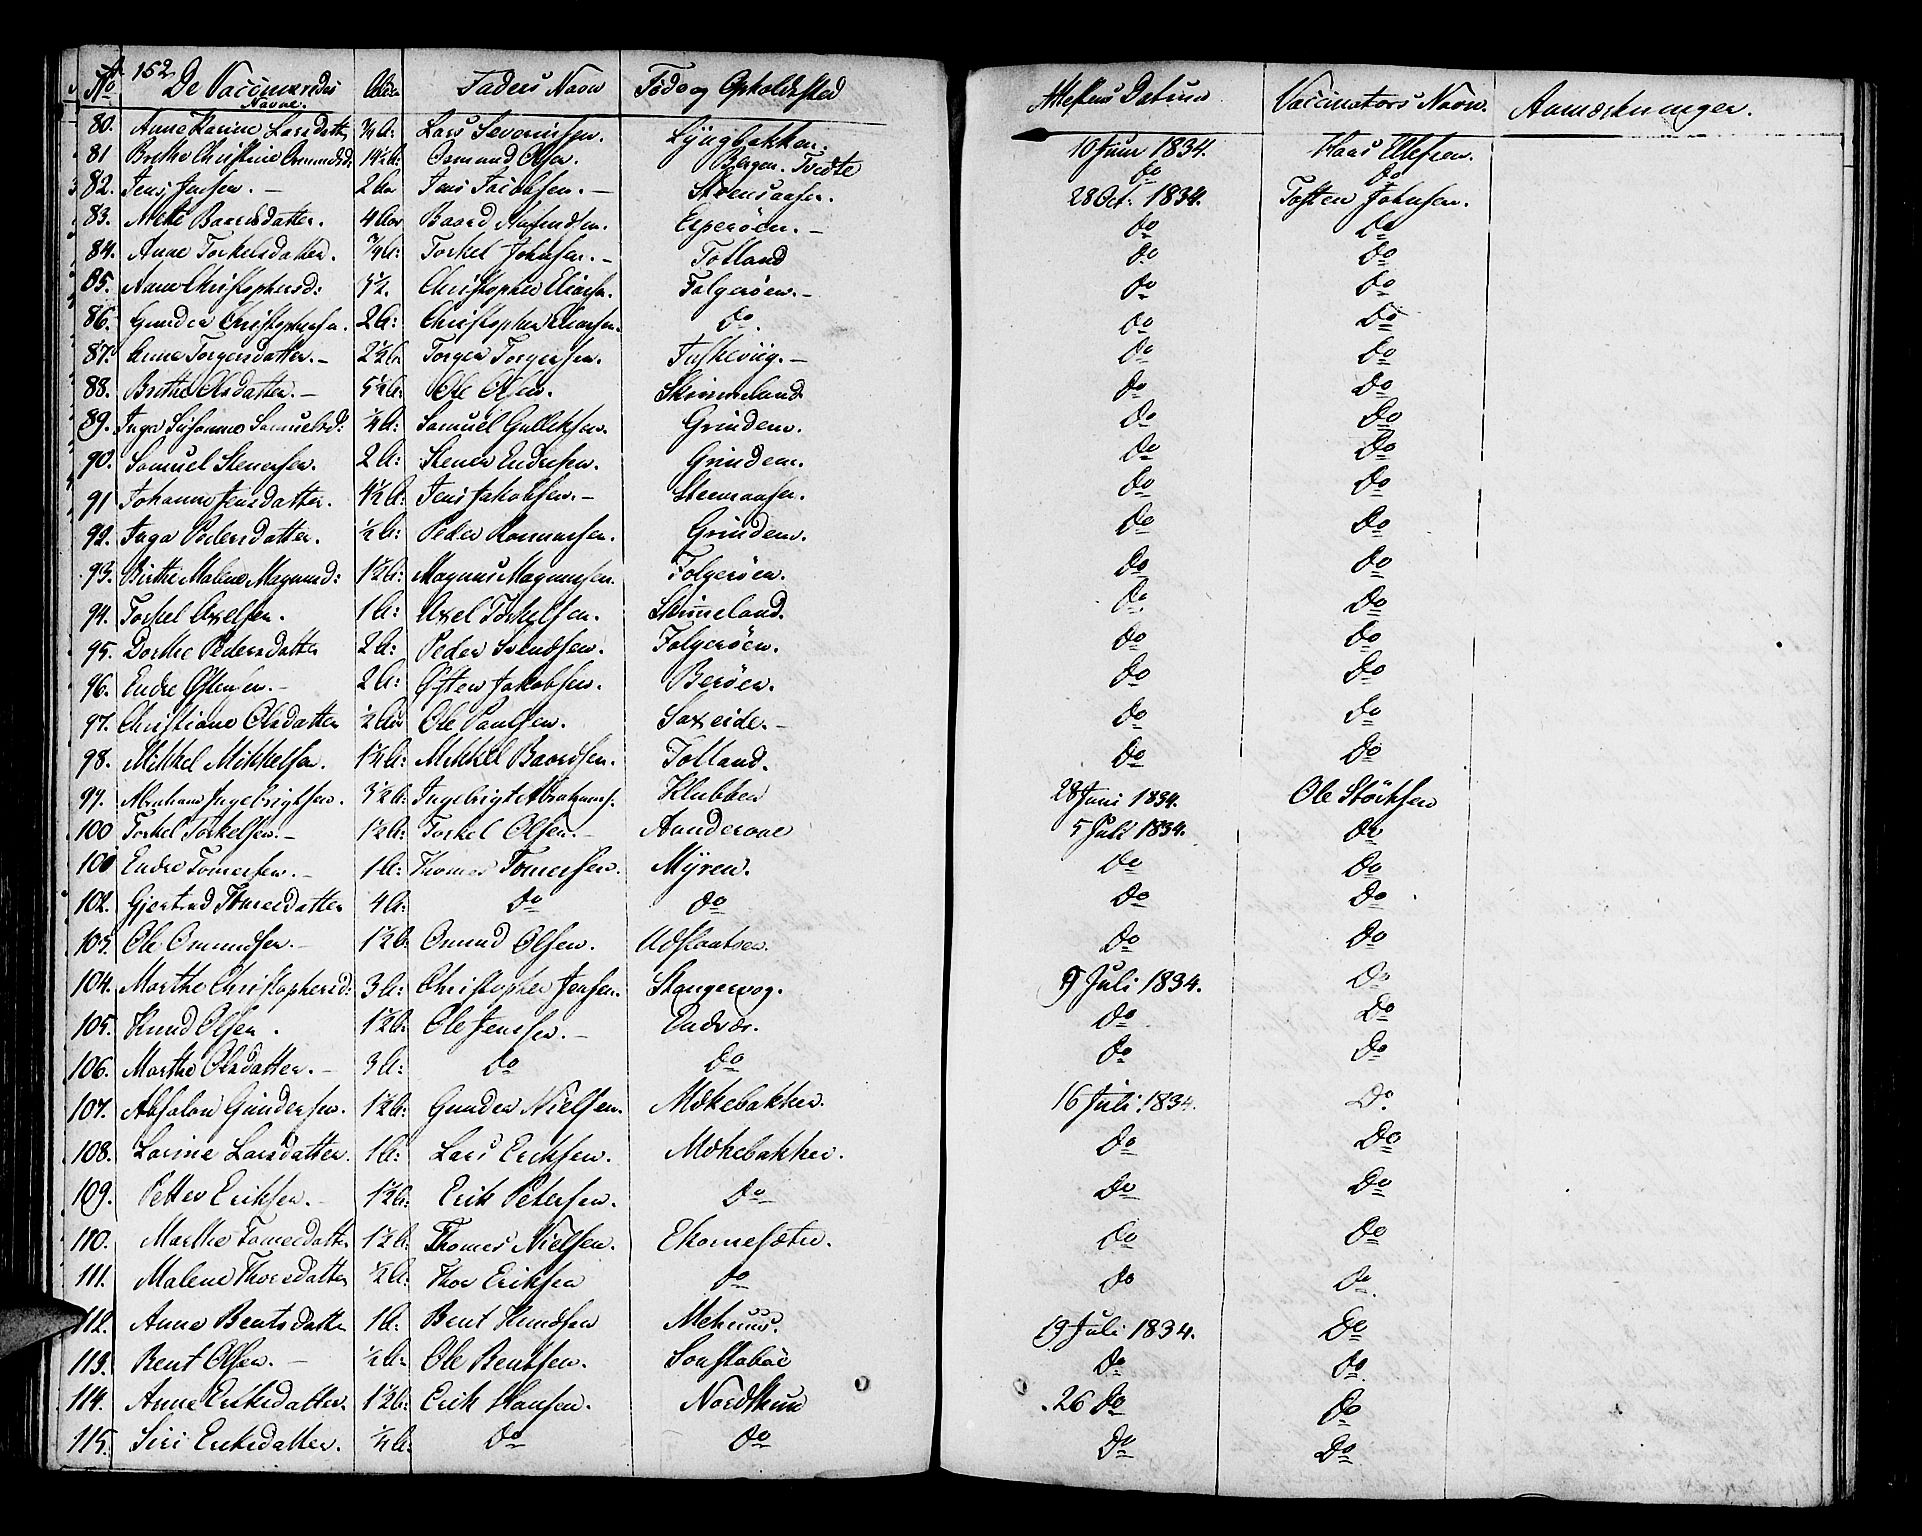 152.
No De Vaccineredes Navne. Alder Faders Navn Føde og Opholdssted Attestens Datum Vaccinators Navn. Anmærkninger.
80. Anne Karine Larsdatter ¾ A: Lars Severinsen. Lyngbakken. 10 Juni 1834. Hans Ellefsen.
81 Brethe Christine Osmundsd. 14½ A: Osmund Olsen. Bergen. Tvedte Do Do
82. Jens Jensen. – 2 Aar Jens Jacobsen. – Steensaasen. 28 Oct. 1834. Tosten Johnsen.
83. Mette Baardsdatter. 4 Aar Baard Esperøen. – Do Do
84. Anne Torkelsdatter. ¾ A: Torkel Johnsen. – Totland Do Do
85. Christophersd: 5½. Christopher Eliasen. Folgerøen. – Do Do
86. Gunder Christophersen. 2 A: Christopher Eliasen. Do. Do Do
87. Anne Torgersdatter. – 2½ A Torger Torgersen. Fiskeviig. – Do Do
88. Brethe Olsdatter. – 5½ A: Ole Olsen. Skimmeland Do Do
89. Inger Susanne Samuelsd: ¼ A: Samuel Gulleksen. Grinden. Do Do
90. Samuel Stenersen. 2 A: Stener Endresen. Grinden. Do Do
91 Johanne Jensdatter. 4½ A: Jens Jakobsen. – Steensaasen. Do Do
92. Inga Pedersdatter. ½ A: Peder Rasmussen. Grinden. Do Do
93. Birthe Malene Magnusd: 1½ A: Magnus Magnussen. Folgerøen. Do Do
94. Torkel Axelsen. 1 A: Axel Torkelsen. Skimeland. Do. Do
95. Dorthe Pedersdatter 2 A: Peder Svendsen. Folgerøen. Do Do
96. Endre Østensen. – 2 A: Østen Jakobsen. Berøen. Do Do
97. Christiane Olsdatter ½ Aar Ole Paulsen. Saxeide. – Do Do
98. Mikkel Mikkelsen. 1¼ A: Mikkel Baardsen. Totland. Do Do
99. Abraham Ingebrigtsen. 3½ A: Ingebrigt Abrahams. Klubben 28 Juni 1834. Ole Störksen
100 Torkel Torkelsen. – 1½ A: Torkel Olsen. – Aanderaae 5 Juli 1834. Do
100 Endre Tomessen. – 1 A: Thomes Tomessen. Myren. Do Do
102. Gjertrud Thomesdatter 4 A: Do Do Do Do
103. Ole Omundsen. – 1½ A. Omund Olsen. Udslaatten. Do Do
104. Marthe Christophersd: 3 A: Christopher Jensen. Stangervog. 9 Juli 1834. Do
105. Knud Olsen. 1½ A: Ole Jensen. – Do Do
106. Marthe Olsdatter. – 3 A: Do Do Do Do
107. Absalon Gundersen. 1½ A: Gunder Nielsen. Mökebakken. 16 Juli 1834. Do.
108. Larine Larsdatter. 1 A: Lars Eriksen. Mökebakken. Do Do
109. Petter Eriksen. – 1½ A: Erik Petersen. Do Do Do
110. Marthe Tomesdatter 1½ A: Thomes Nielsen. Ekornesæter. Do Do
111. Malene Thoresdatter ½ A: Thor Eriksen Do Do Do.
112. Anne Bentsdatter 1 A: Bent Knudsen Mehuus. 19 Juli 1834. Do
113. Bent Olsen. – ½ A: Ole Bentsen. Sonstabøe Do Do.
114. Anne Eriksdatter. 1½ A: Erik Hansen. Nordskuu 26 Do Do
115. Siri Eriksdatter. ¼ A: Do Do Do Do